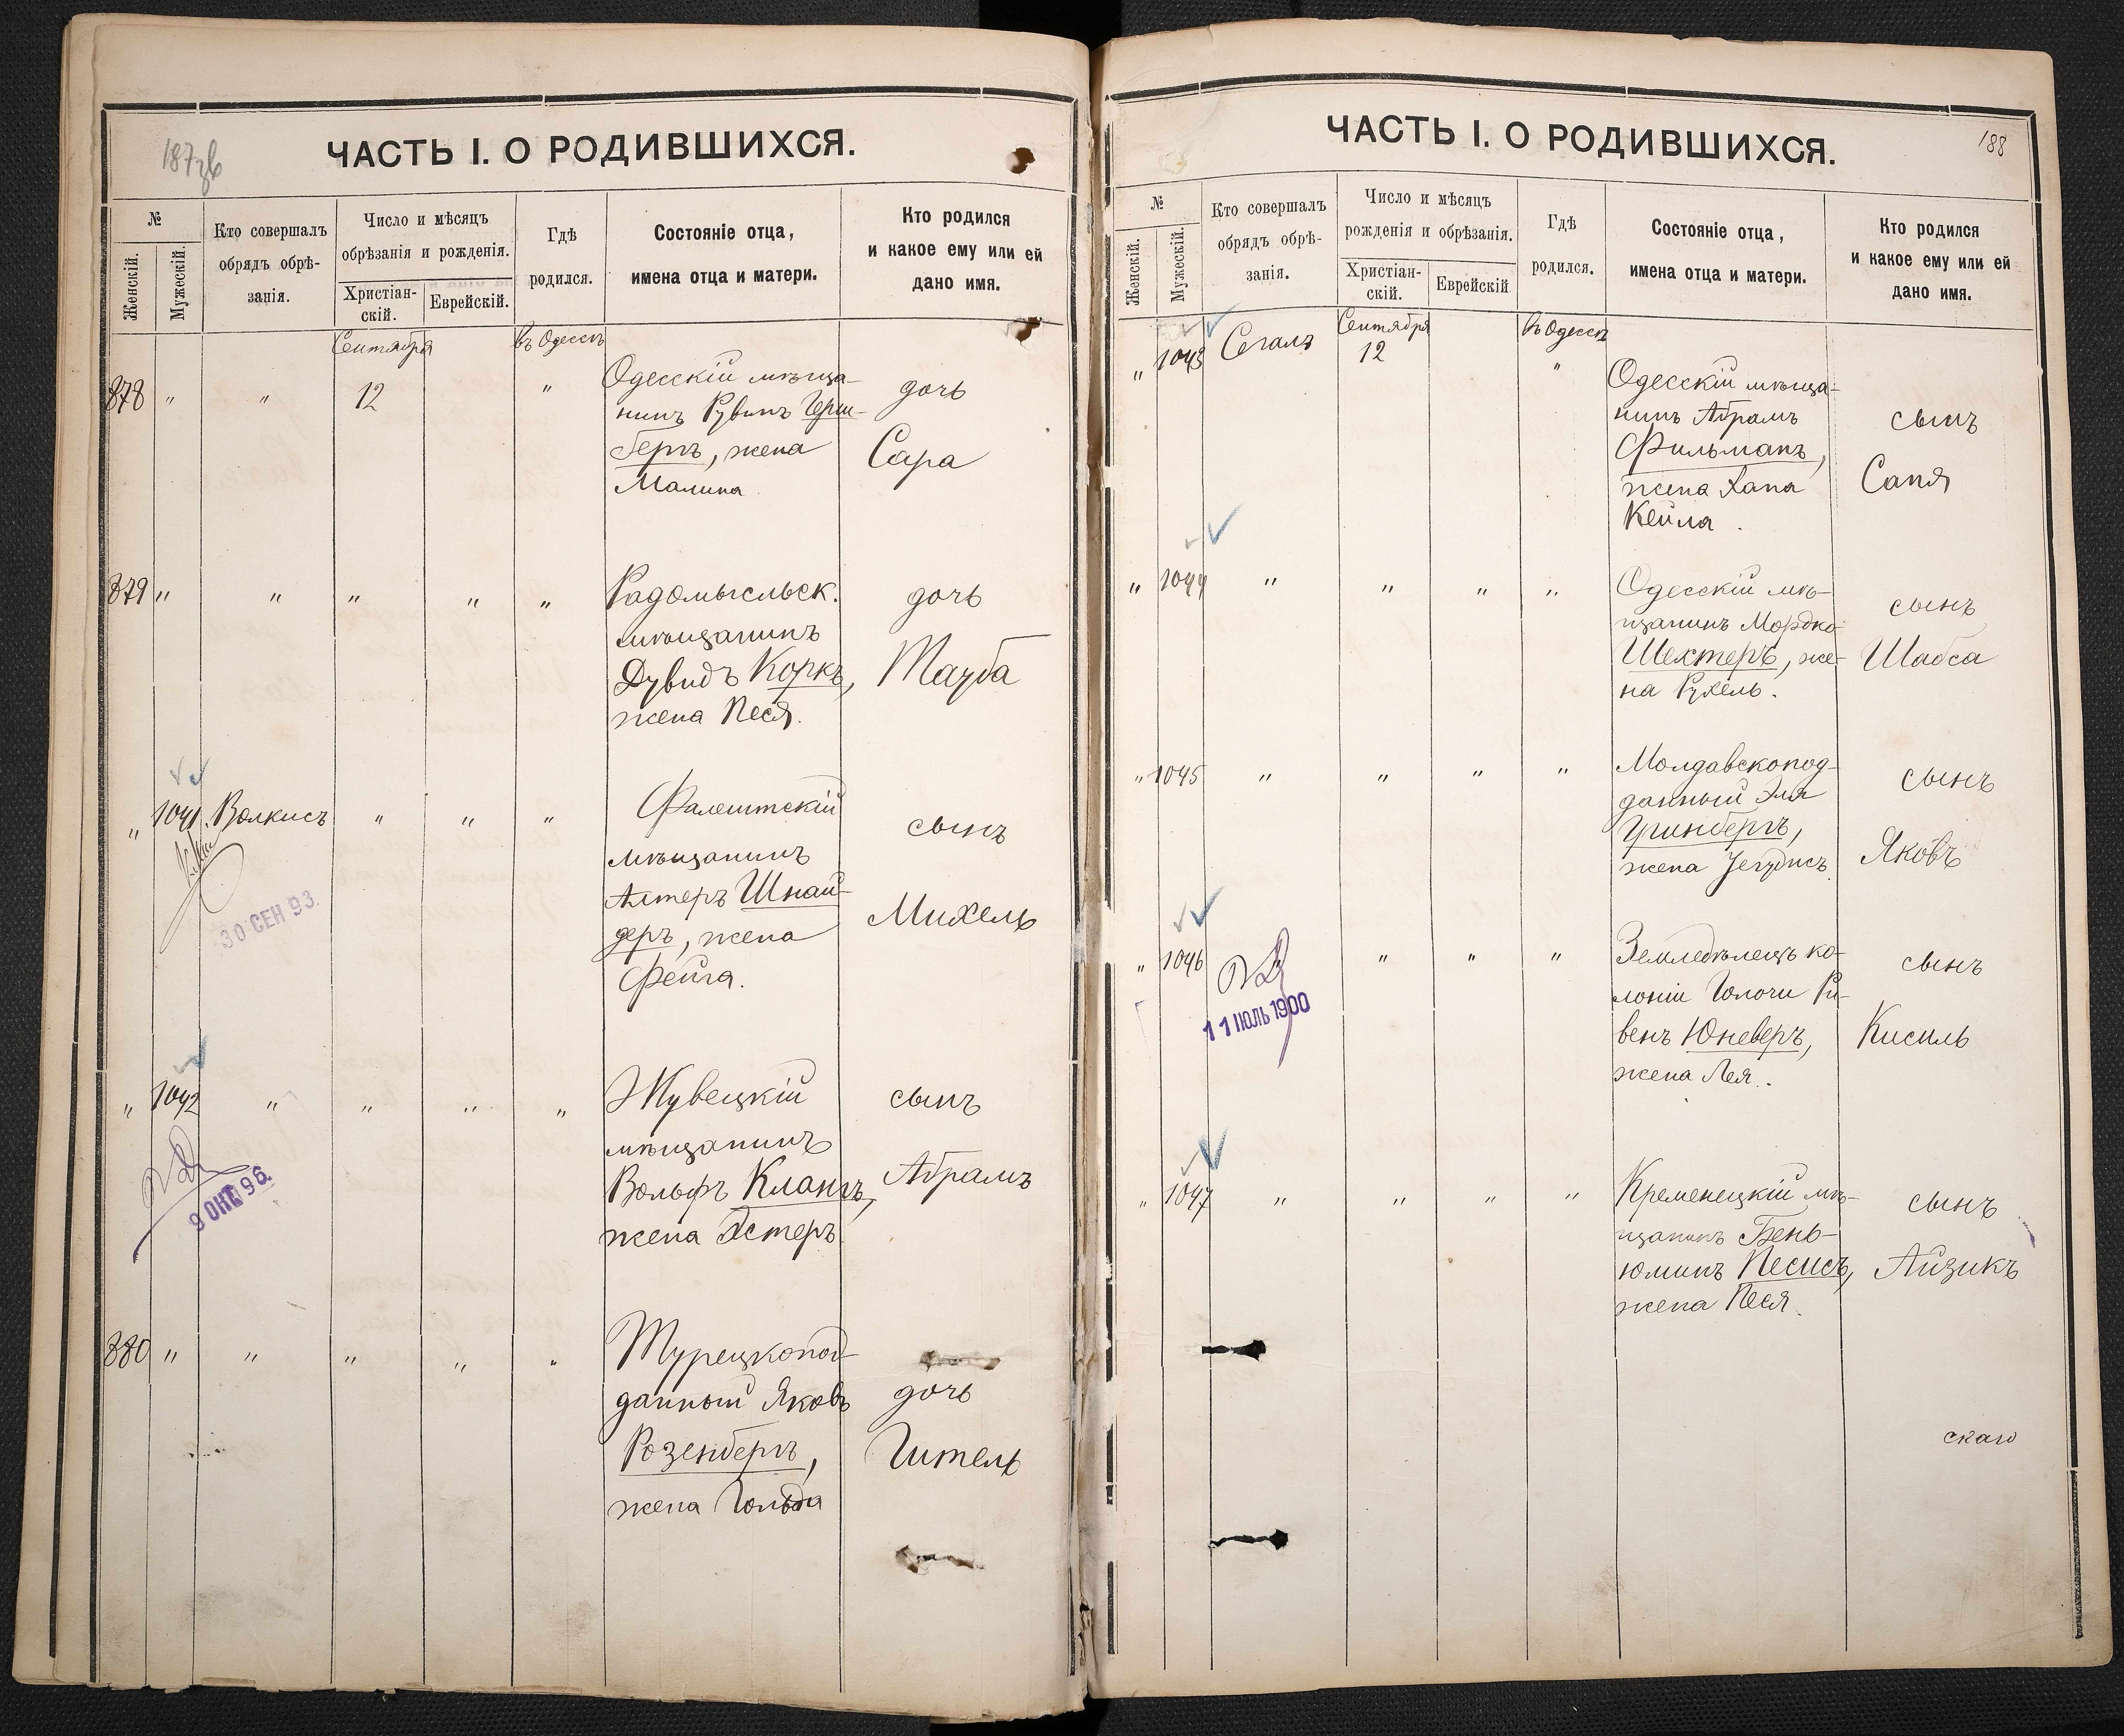 187зв
ЧАСТЬ I. О РОДИВШИХСЯ.
№
Женскій.
Мужескій.
Кто совершалъ
обрядъ обрѣ-
занія.
Число и мѣсяцъ
обрѣзанія и рожденія.
Христіан-
скій.
Еврейскій.
Гдѣ
родился.
Состояніе отца,
имена отца и матери.
Кто родился
и какое ему или ей
дано имя.
Сентября
въ Одессѣ
878 " " 12 "
Одесскій мѣща-
нинъ Рувинъ Герш-
бергъ, жена
Малина
дочь
Сара
879 " " " " "
Радомысльск.
мѣщанинъ
Дувидъ Коркъ,
жена Песя.
дочь
Тауба
" 1041. Волкисъ " " "
30 СЕН 93
Фалештскій
мѣщанинъ
Алтеръ Шнай-
деръ, жена
Фейга.
сынъ
Михель
" 1042 " " " "
9 ОКТ 96.
Жувецкій
мѣщанинъ
Вольфъ Клангъ,
жена Эстеръ
сынъ
Абрамъ
880 " " " " "
Турецкопод-
данный Яковъ
Розенбергъ,
жена Гольда
дочь
Гитель
188
ЧАСТЬ I. О РОДИВШИХСЯ.
№
Женскій.
Мужескій.
Кто совершалъ
обрядъ обрѣ-
занія.
Число и мѣсяцъ
рожденія и обрѣзанія.
Христіан-
скій.
Еврейскій
Гдѣ
родился.
Состояніе отца,
имена отца и матери.
Кто родился
и какое ему или ей
дано имя.
Сентября
въ Одессѣ
" 1043 Сегалъ 12 "
Одесскій мѣща-
нинъ Абрамъ
Фильманъ,
жена Хана
Кейла.
сынъ
Саня
" 1044 " " " "
Одесскій мѣ-
щанинъ Мордко
Шехтеръ, же-
на Рухель.
сынъ
Шабса
" 1045 " " " "
Молдавскопод-
данный Эля
Гринбергъ,
жена Іегудисъ
сынъ
Яковъ
" 1046 " " "
11 ІЮЛЬ 1900
Земледѣлецъ ко-
лоніи Ри-
венъ Юневеръ,
жена Лея.
сынъ
Кисиль
" 1047 " " " "
Кременецкій мѣ-
щанинъ Бень-
юминъ Песисъ,
жена Песя.
сынъ
Айзикъ
скаго